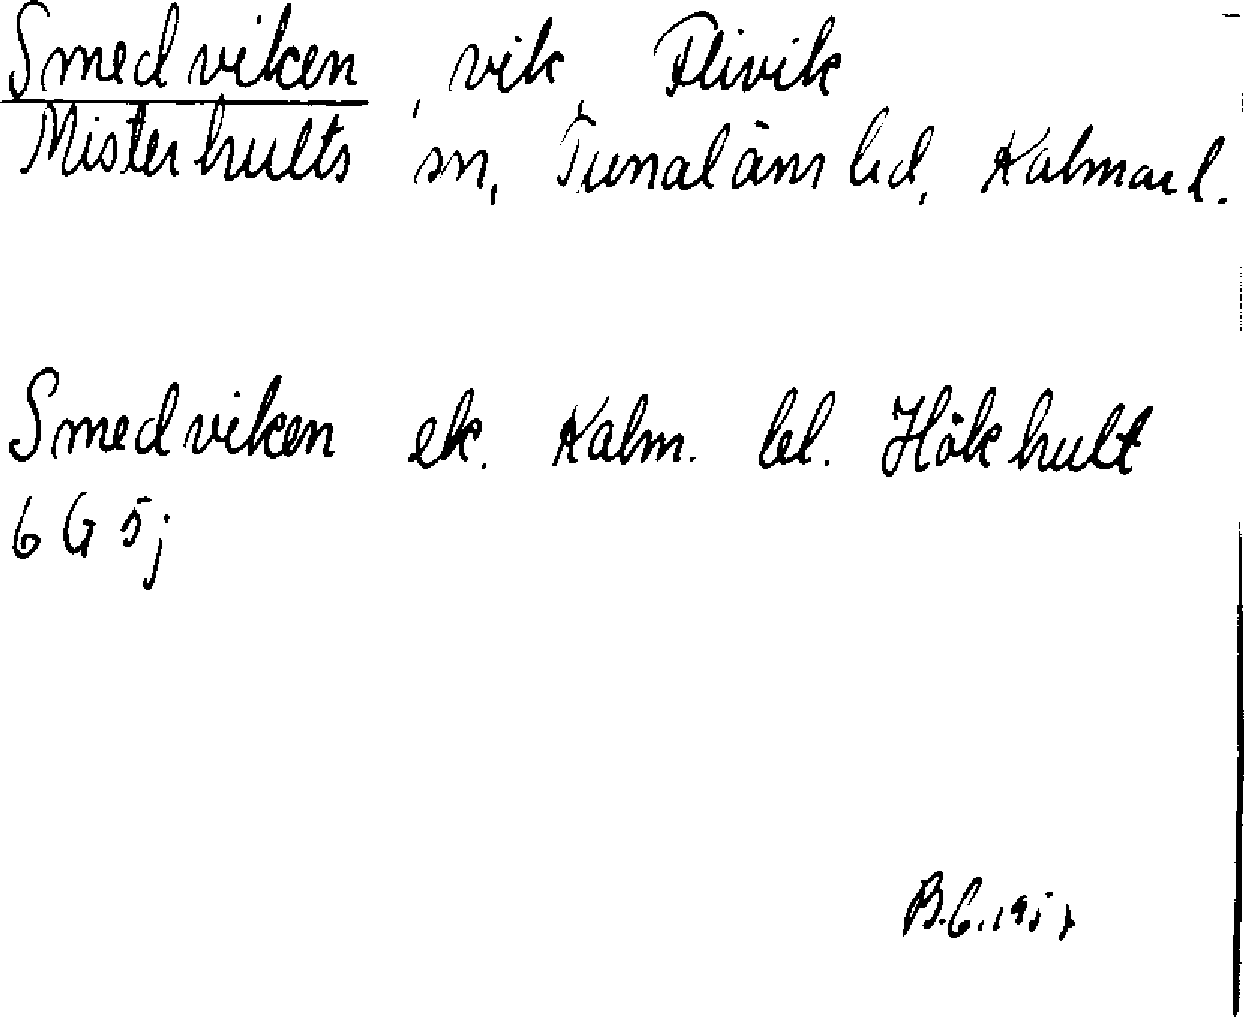 Smedviken, vik, Flivik
Misterhults sn, Tunaläns hd, Kalmar l.
Smedviken ek. Kalm. bl. Hökhult
6 G 5j